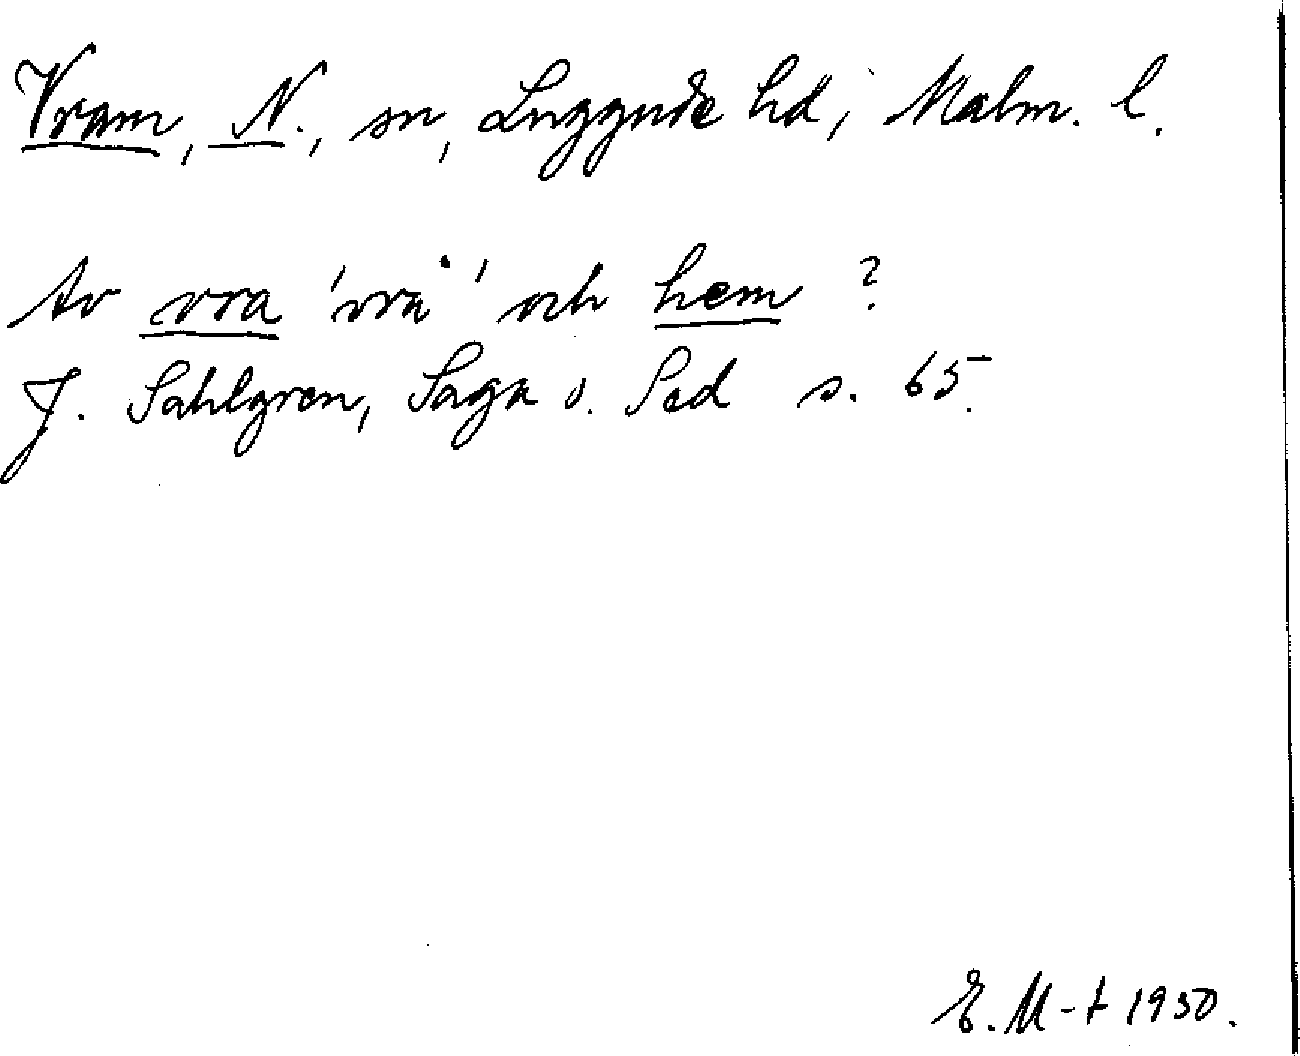 Vram, N., sn, Luggude hd, Malm. l.
Av vra 'vrå' och hem ?
J. Sahlgren, Saga o. Sed s. 65.
E. M-t 1950.